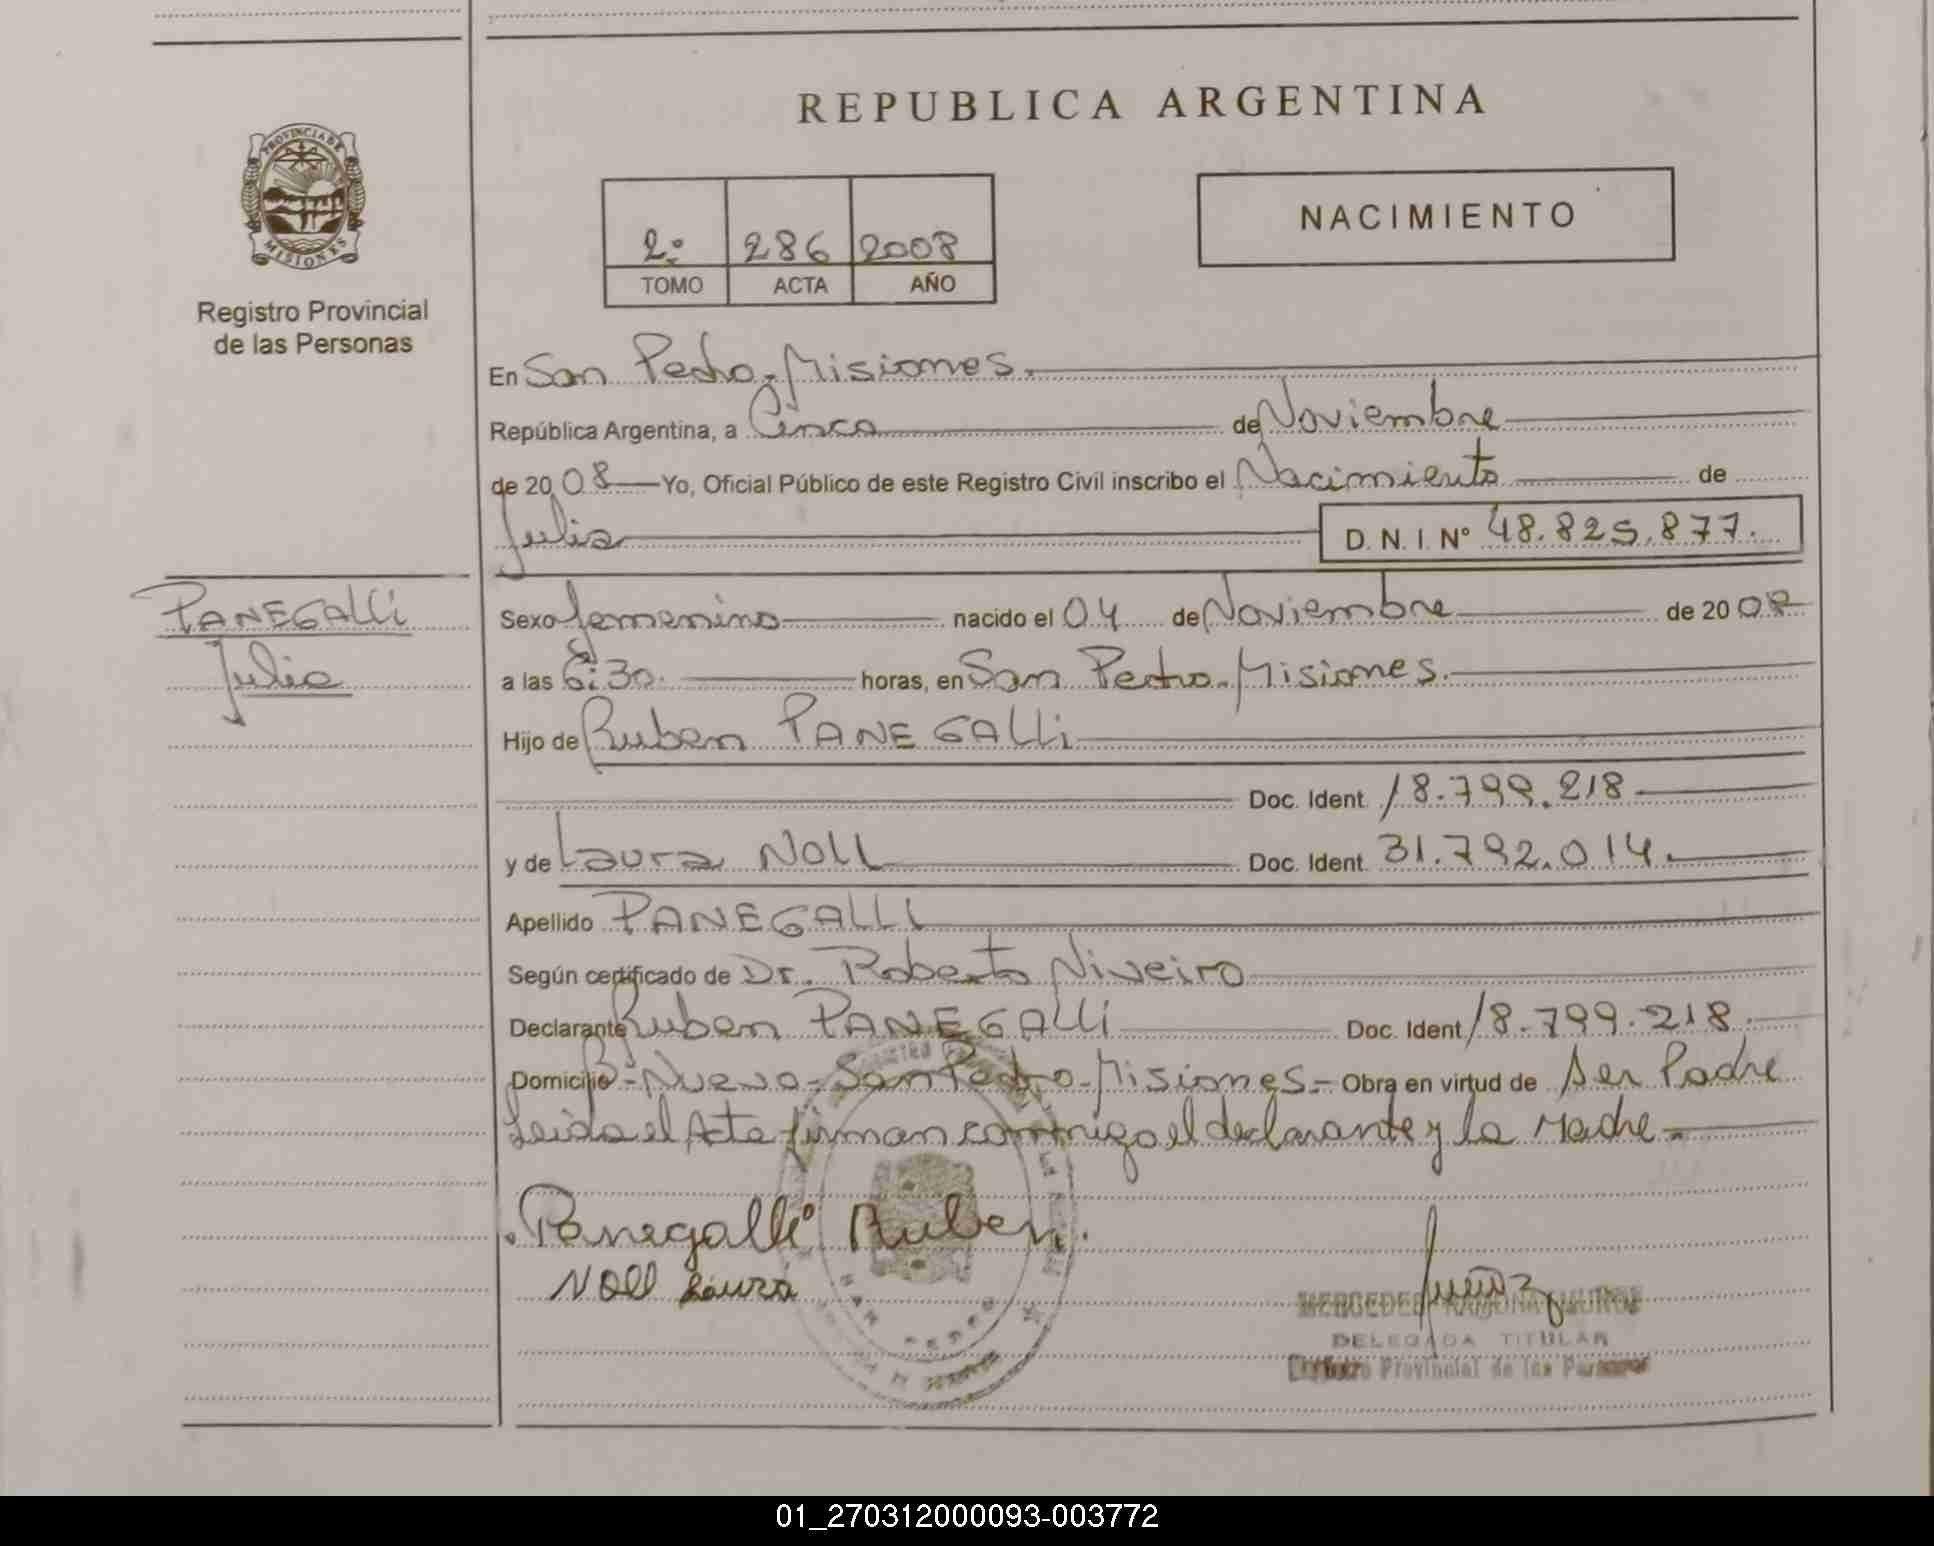 REPUBLICA ARGENTINA
PROVINCIA DE
MISIONES
Registro Provincial
de las Personas
NACIMIENTO
2º 286 2008
TOMO ACTA AÑO
En San Pedro - Misiones.
República Argentina, a Cinco de Noviembre
de 2008 Yo, Oficial Público de este Registro Civil inscribo el Nacimiento de
Julia D. N. I. Nº 48.825.877.
PANEGALLi
Julia
Sexo femenino nacido el 04 de Noviembre de 2008
a las 6:30 horas, en San Pedro - Misiones.
Hijo de Ruben PANEGALLi
Doc. Ident. 18.799.218
y de Laura NOLL Doc. Ident. 31.792.014.
Apellido PANEGALLI
Según certificado de Dr. Roberto Niveiro
Declarante Ruben PANEGALLi Doc. Ident. 18.799.218.
Domicilio Bº Nuevo - San Pedro - Misiones - Obra en virtud de Ser Padre
Leida el Acta firman conmigo el declarante y la Madre -
Panegalli Ruben.
NOLL Laura
MERCEDES RAMONA
DELEGADA TITULAR
Registro Provincial de las Personas
SAN PEDRO
01_270312000093-003772